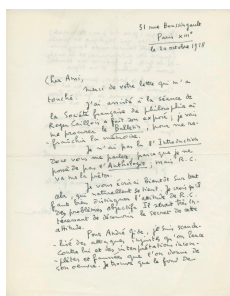 31 rue Boussingault
Paris XIIIe
le 20 octobre 1918
Cher Ami,
merci de votre lettre qui m'a
touché.
J'ai assisté à la séance de
la Société française de philosophie où
Roger Caillois a fait son exposé, je vais
me procurer le Bulletin, pour me ra-
fraîchir la mémoire.
Je n'ai pas lu l'Introduction
dont vous me parlez, parce que je ne
possède pas l'Anthologie, mais R. C.
va me la prêter.
Je vous écrirai bientôt sur tout
cela, qui naturellement
faut bien distinguer l'attitude de R. C.
des problèmes objectifs. Il serait très in-
téressant de découvrir le secret de cette
attitude.
Pour André Gide, je suis scanda-
-lisé des attaques injustes qu'on lance
contre lui et des interprétations incom-
-plètes et faussées que l'on donne de
son œuvre. Je trouve que le fond de